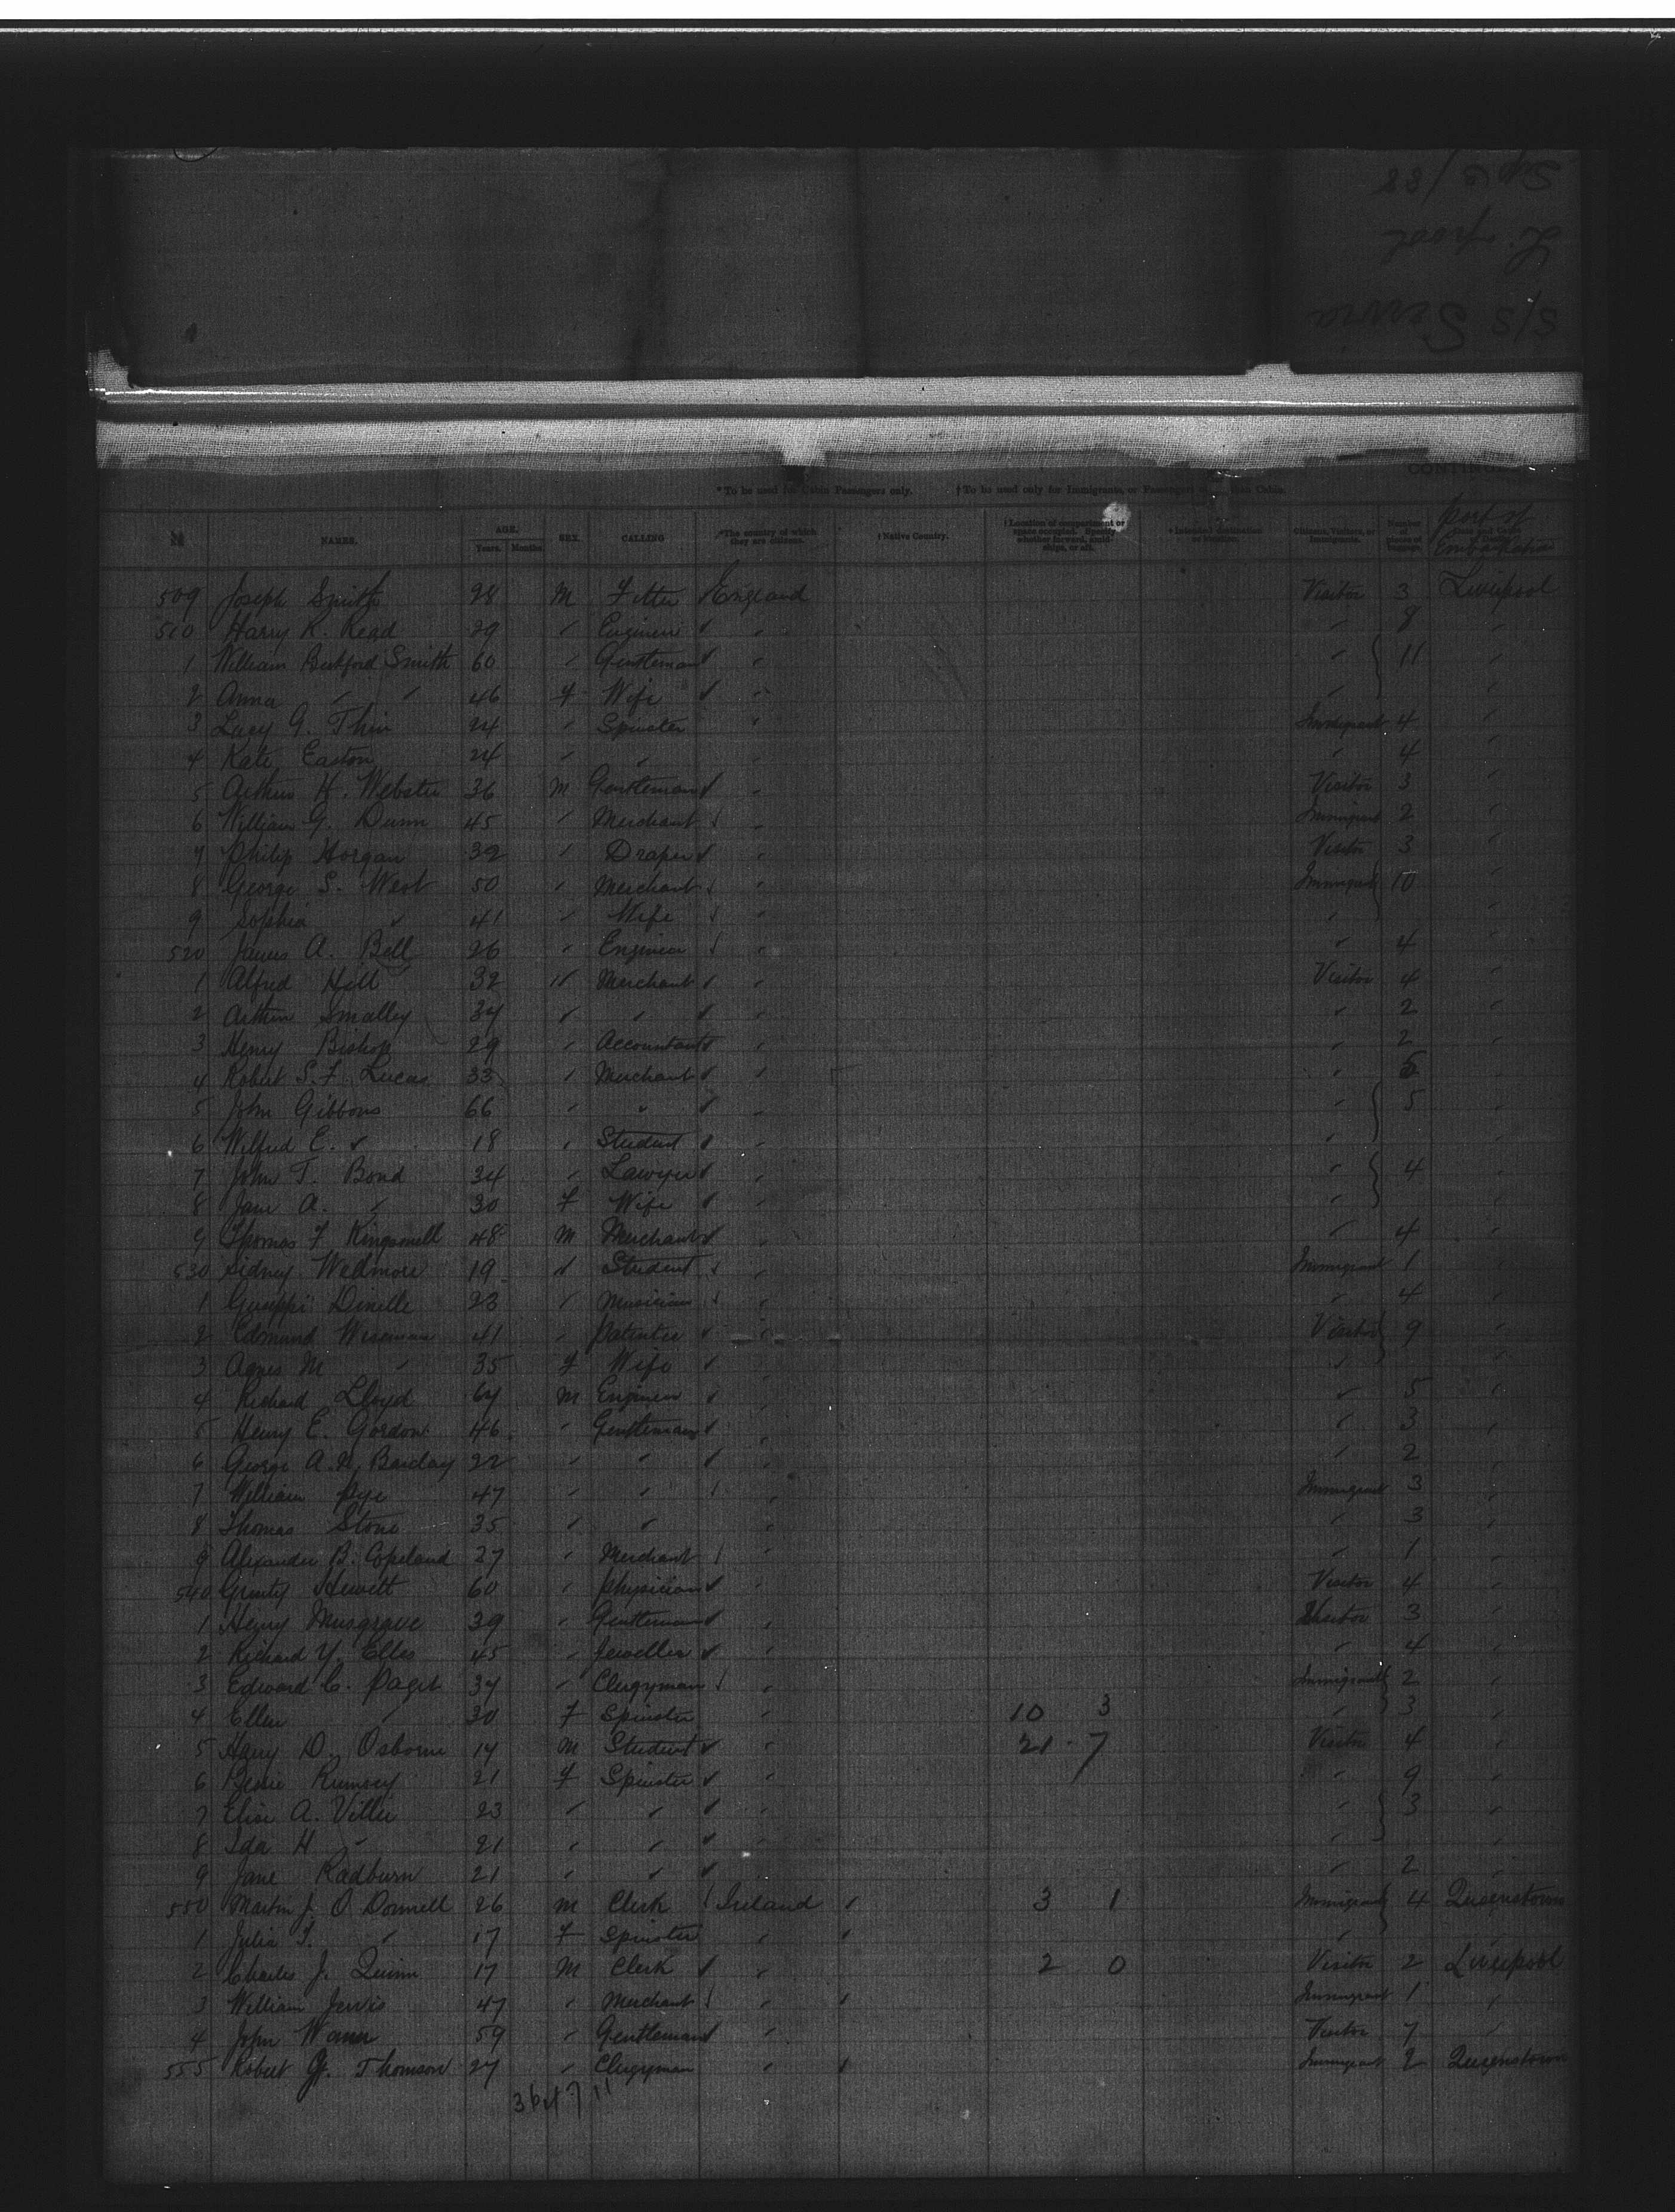 S/S Servia
L. pool
Sep 6/88
CONTING
*To be used for Cabin Passengers only. †To be used only for Immigrants, or Passengers other than Cabin.
NAMES. AGE. Years. Months. SEX. CALLING *The country of which they are citizens. †Native Country. †Location of compartment or space occupied. Specify whether forward, amidships, or aft. †Intended destination or location. Citizens, Visitors, or Immigrants. Number of pieces of baggage. port of Embarkation
509 Joseph Smith 28 M Fitter England Visitor 3 Liverpool
510 Harry K. Read 29 " Engineer " " 8 "
1 William Smith 60 " Gentleman " " 11 "
2 Anna " " 46 F Wife " " "
3 Lucy G. Thin 24 " Spinster " Immigrant 4 "
4 Kate Easton 24 " " " " 4 "
5 Arthur H. Webster 36 M Gentleman " Visitor 3 "
6 William G. Dunn 45 " Merchant " Immigrant 2 "
7 Philip Horgan 32 " Draper " Visitor 3 "
8 George S. West 50 " Merchant " Immigrant 10 "
9 Sophia " 41 " Wife " " "
520 James A. Bell 26 " Engineer " " 4 "
1 Alfred Hill 32 " Merchant " Visitor 4 "
2 Arthur Smalley 34 " " " " 2 "
3 Henry Bishop 29 " Accountant " " 2 "
4 Robert S. F. Lucas 33 " Merchant " " 5
5 John Gibbons 66 " " " " 5 "
6 Wilfred E. " 18 " Student " "
7 John T. Bond 34 " Lawyer " " 4 "
8 Jane A. " 30 F Wife " " "
9 Thomas F Kingsnell 48 M Merchant " " 4 "
530 Sidney Wedmore 19 " Student " Immigrant 1 "
1 23 " Musician " " 4 "
2 Edmund Wiseman 41 " Patentee " Visitor 9 "
3 Agnes M " 35 F Wife " " "
4 Richard Lloyd 64 M Engineer " " 5 "
5 Henry E. Gordon 46 " Gentleman " " 3 "
6 George A. H. Barclay 22 " " " " 2 "
7 William Pye 47 " " " Immigrant 3 "
8 Thomas Stone 35 " " " " 3 "
9 Alexander B. Copeland 27 " Merchant " " 1 "
540 Hewett 60 " Physician " Visitor 4 "
1 Henry Musgrave 39 " Gentleman " Visitor 3 "
2 Richard Y. Elles 45 " Jeweller " " 4 "
3 Edward C. Paget 34 " Clergyman " Immigrant 2 "
4 Ellen " 30 F Spinster " 10 3 " 3 "
5 Harry D. Osborne 14 M Student " 21 - 7 Visitor 4 "
6 Bessie Rumsey 21 F Spinster " " 9 "
7 Elise A. Viller 23 " " " " 3 "
8 Ida H " 21 " " " " "
9 Jane Radburn 21 " " " 2 "
550 Martin J. O Donnell 26 M Clerk Ireland 3 1 Immigrant 4 Queenstown
1 Julia T. " 17 F Spinster " " "
2 Charles J. Quinn 17 M Clerk " 2 0 Visitor 2 Liverpool
3 William Jervis 47 " Merchant " Immigrant 1 "
4 John 59 " Gentleman " Visitor 7 "
555 Robert G. Thomson 27 " Clergyman " Immigrant 2 Queenstown